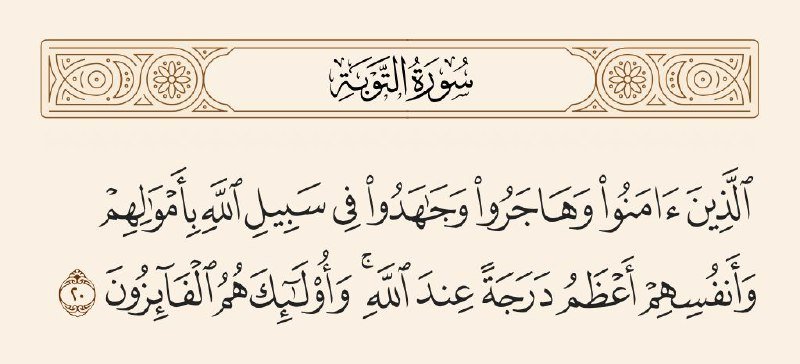 سُورَةُ التَّوۡبَةِ
ٱلَّذِينَ ءَامَنُواْ وَهَاجَرُواْ وَجَٰهَدُواْ فِي سَبِيلِ ٱللَّهِ بِأَمۡوَٰلِهِمۡ
وَأَنفُسِهِمۡ أَعۡظَمُ دَرَجَةً عِندَ ٱللَّهِۚ وَأُوْلَٰٓئِكَ هُمُ ٱلۡفَآئِزُونَ ٢٠